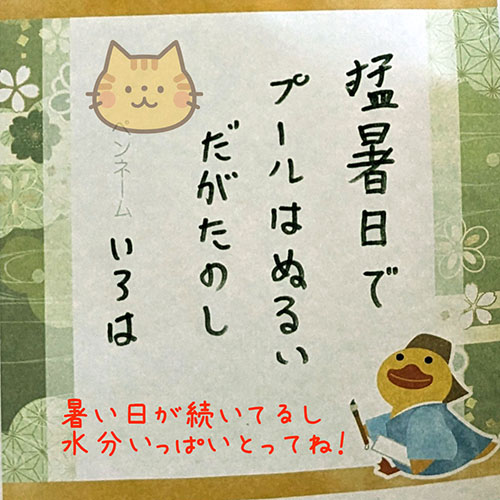 猛暑日で
プールはぬるい
だがたのし
ペンネーム
いろは
暑い日が続いてるし
水分いっぱいとってね!